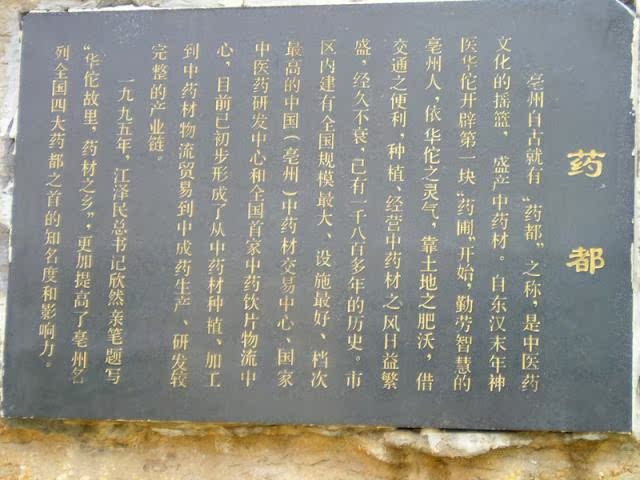 药都
亳州自古就有“药都”之称，是中医药
文化的摇篮，盛产中药材。自东汉末年神
医华佗开辟第一块“药圃”开始，勤劳智慧的
亳州人，依华佗之灵气，靠土地之肥沃，借
交通之便利，种植、经营中药材之风日益繁
盛，经久不衰，已有一千八百多年的历史。市
区内建有全国规模最大、设施最好、档次
最高的中国（亳州）中药材交易中心、国家
中医药研发中心和全国首家中药饮片物流中
心，目前已初步形成了从中药材种植、加工
到中药材物流贸易到中成药生产、研发较
完整的产业链。
一九九五年，江泽民总书记欣然亲笔题写
“华佗故里，药材之乡”，更加提高了亳州名
列全国四大药都之首的知名度和影响力。